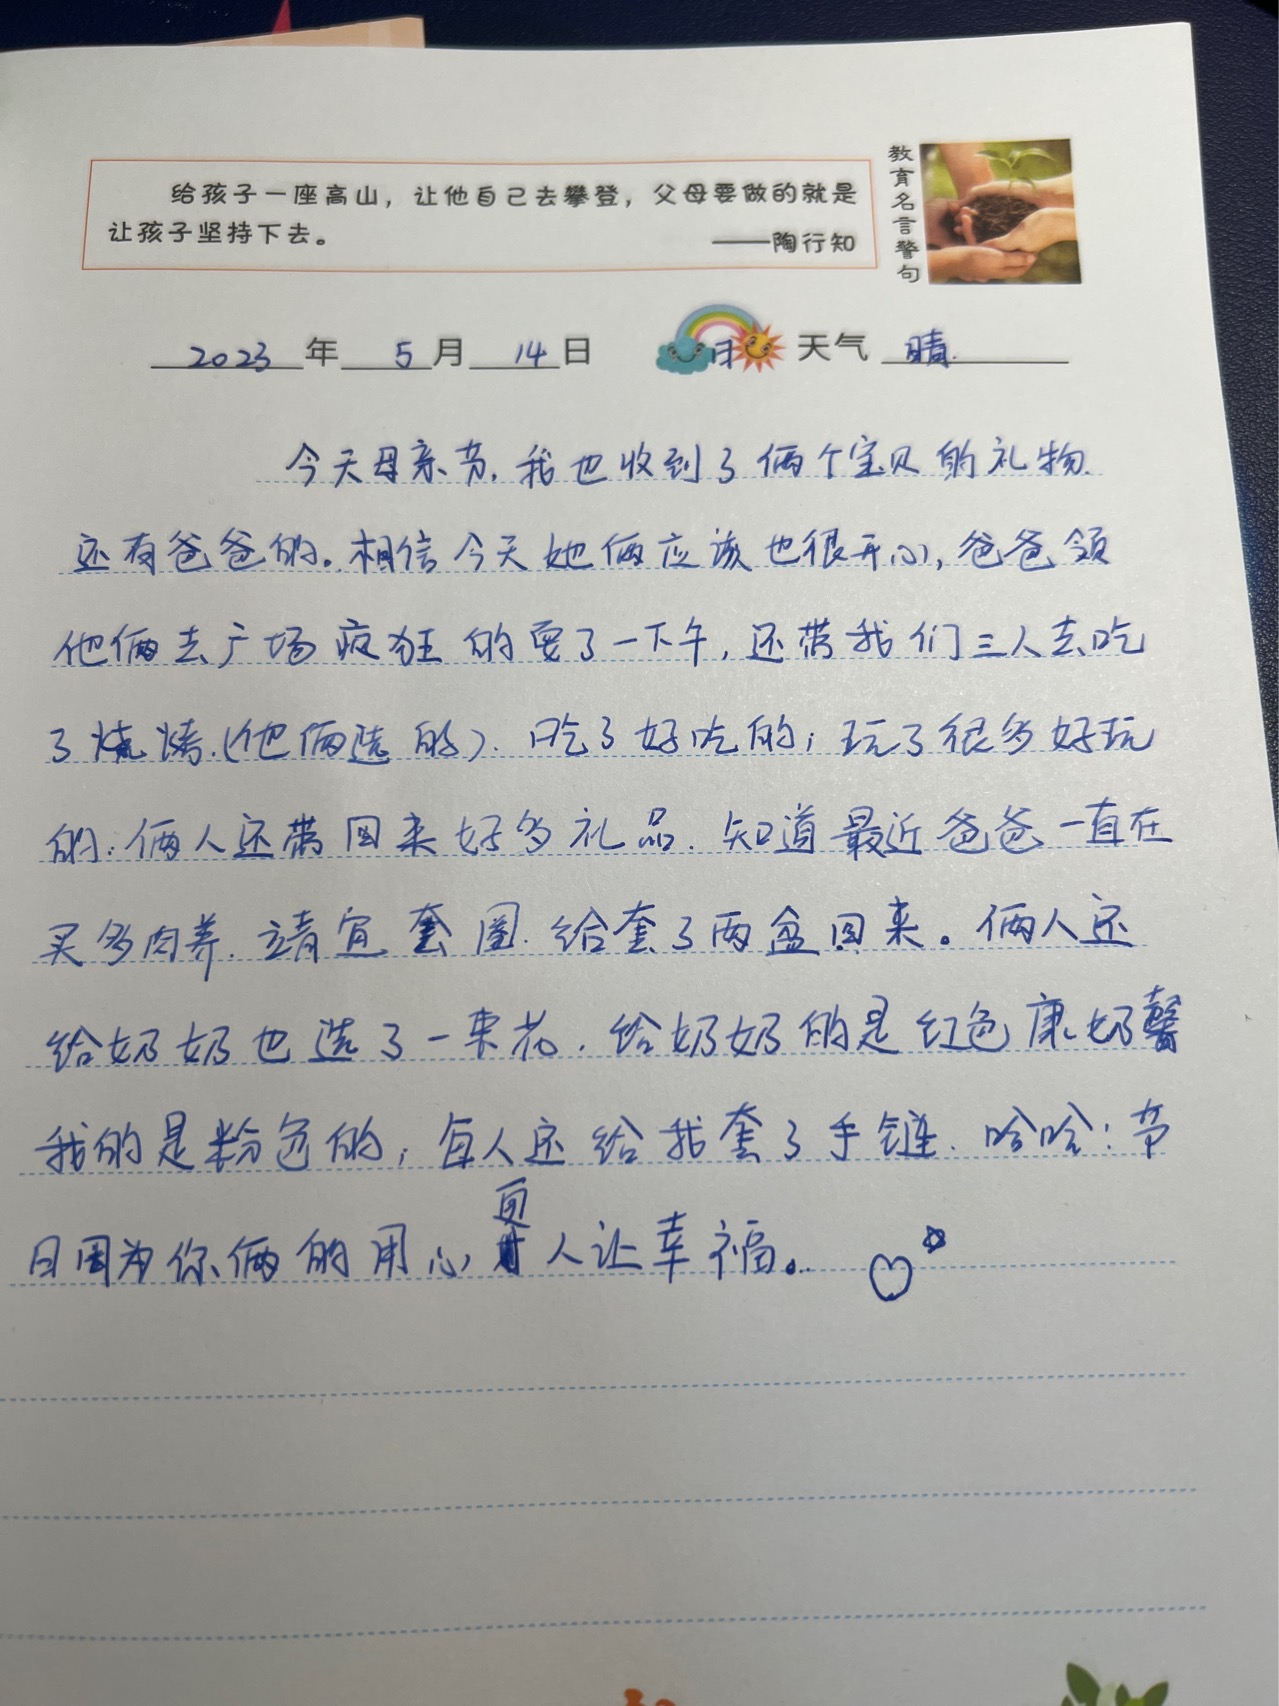 给孩子一座高山，让他自己去攀登，父母要做的就是
让孩子坚持下去。
——陶行知
教育名言警句
2023年5月14日 日 天气 晴.
今天母亲节,我也收到了俩个宝贝的礼物.
还有爸爸的。相信今天她俩应该也很开心,爸爸领
他俩去广场疯狂的耍了一下午,还带我们三人去吃
了烧烤.(他俩选的).吃了好吃的;玩了很多好玩
的;俩人还带回来好多礼品.知道最近爸爸一直在
买多肉养.靖宜套圈.给套了两盆回来。俩人还
给奶奶也选了一束花.给奶奶的是红色康奶馨
我的是粉色的;每人还给我套了手链.哈哈:节
日因为你俩的用心更人让幸福。